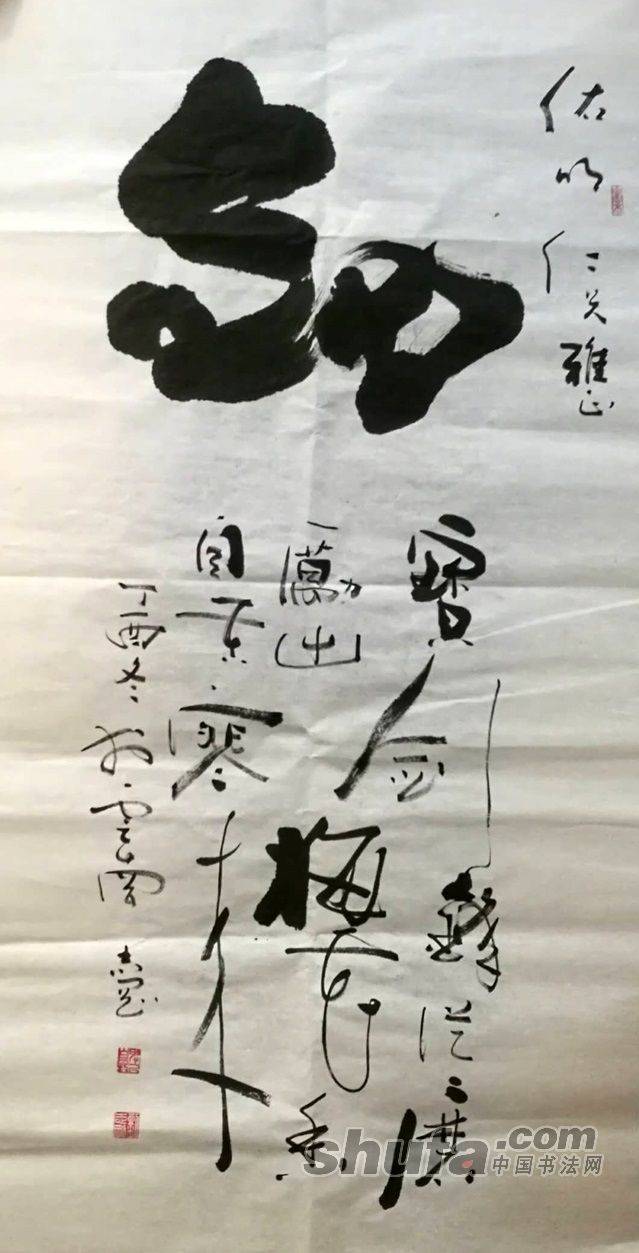 佑明仁兄雅正
寶劍鋒從磨
勵出梅花香
自苦寒來
丁酉冬於雲
shufa.com
中国书法网